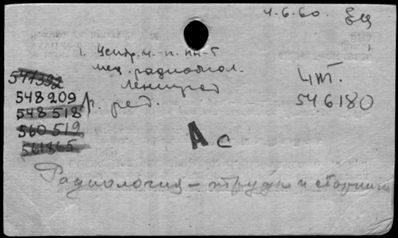 4.6.60. ЕЦ
1. Центр. н.-и. ин-т
мед. радиол.
Ленинград
р. ред.
чт.
546180
547392
548209
548518
560519
561865
Ас
Радиология - труды и сборники